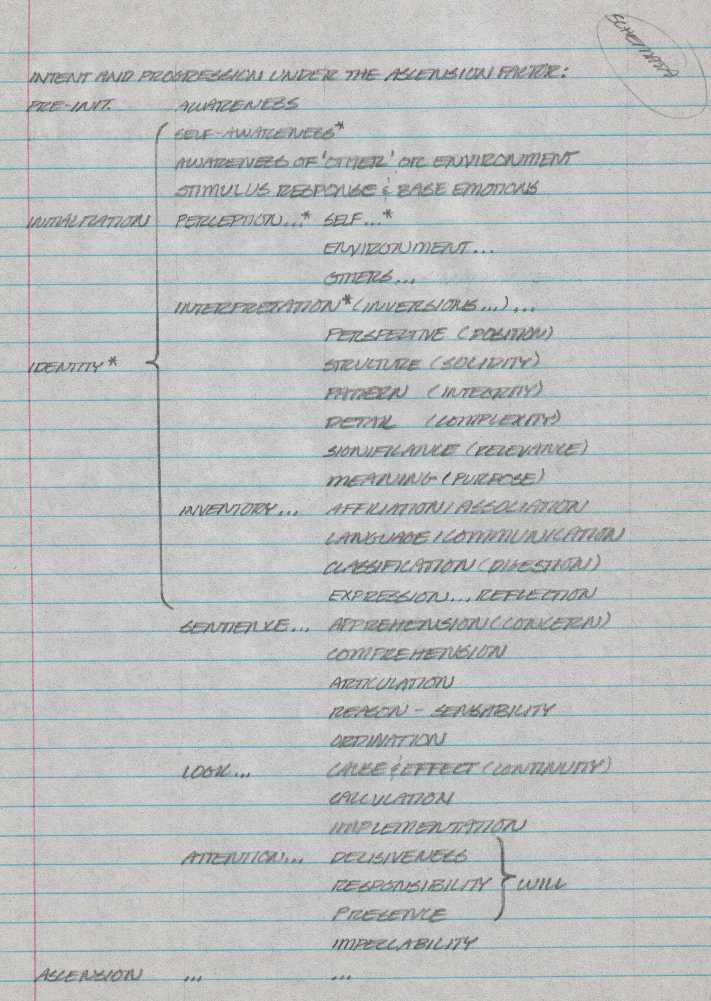 SCHEMATA
INTENT AND PROGRESSION UNDER THE ASCENSION FACTOR:
PRE-INIT. AWARENESS
SELF-AWARENESS*
AWARENESS OF 'OTHER' OR ENVIRONMENT
STIMULUS RESPONSE & BASE EMOTIONS
INITIALIZATION PERCEPTION...* SELF...*
ENVIRONMENT...
OTHERS...
INTERPRETATION* (INVERSIONS...)...
PERSPECTIVE (POSITION)
IDENTITY* STRUCTURE (SOLIDITY)
PATTERN (INTEGRITY)
DETAIL (COMPLEXITY)
SIGNIFICANCE (RELEVANCE)
MEANING (PURPOSE)
INVENTORY... AFFILIATION/ASSOCIATION
LANGUAGE/COMMUNICATION
CLASSIFICATION (DIGESTION)
EXPRESSION...REFLECTION
SENTIENCE... APPREHENSION (CONCERN)
COMPREHENSION
ARTICULATION
REASON - SENSABILITY
ORDINATION
LOGIC... CAUSE & EFFECT (CONTINUITY)
CALCULATION
IMPLEMENTATION
ATTENTION... DECISIVENESS
RESPONSIBILITY WILL
PRESENCE
IMPECCABILITY
ASCENSION ... ...